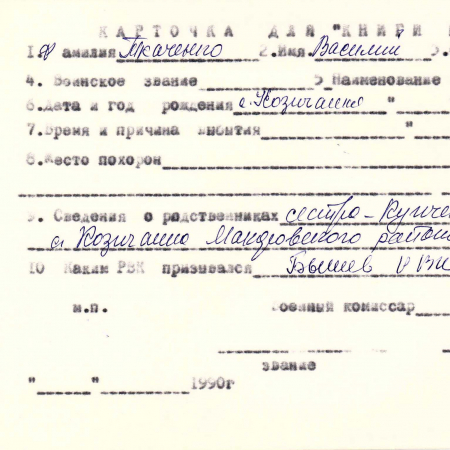 КАРТОЧКА ДЛЯ "КНИГИ
1. Фамилия Ткаченко 2. Имя Василий 3.
4. Воинское звание 5 Наименование
6. Дата и год рождения с. Козичанка "
7. Время и причина выбытия "
8. Место похорон
9. Сведения о родственниках сестра -
с. Козичанка Макаровского
10 Каким РВК призывался
м.п. Военный комиссар
звание
" " 1990г